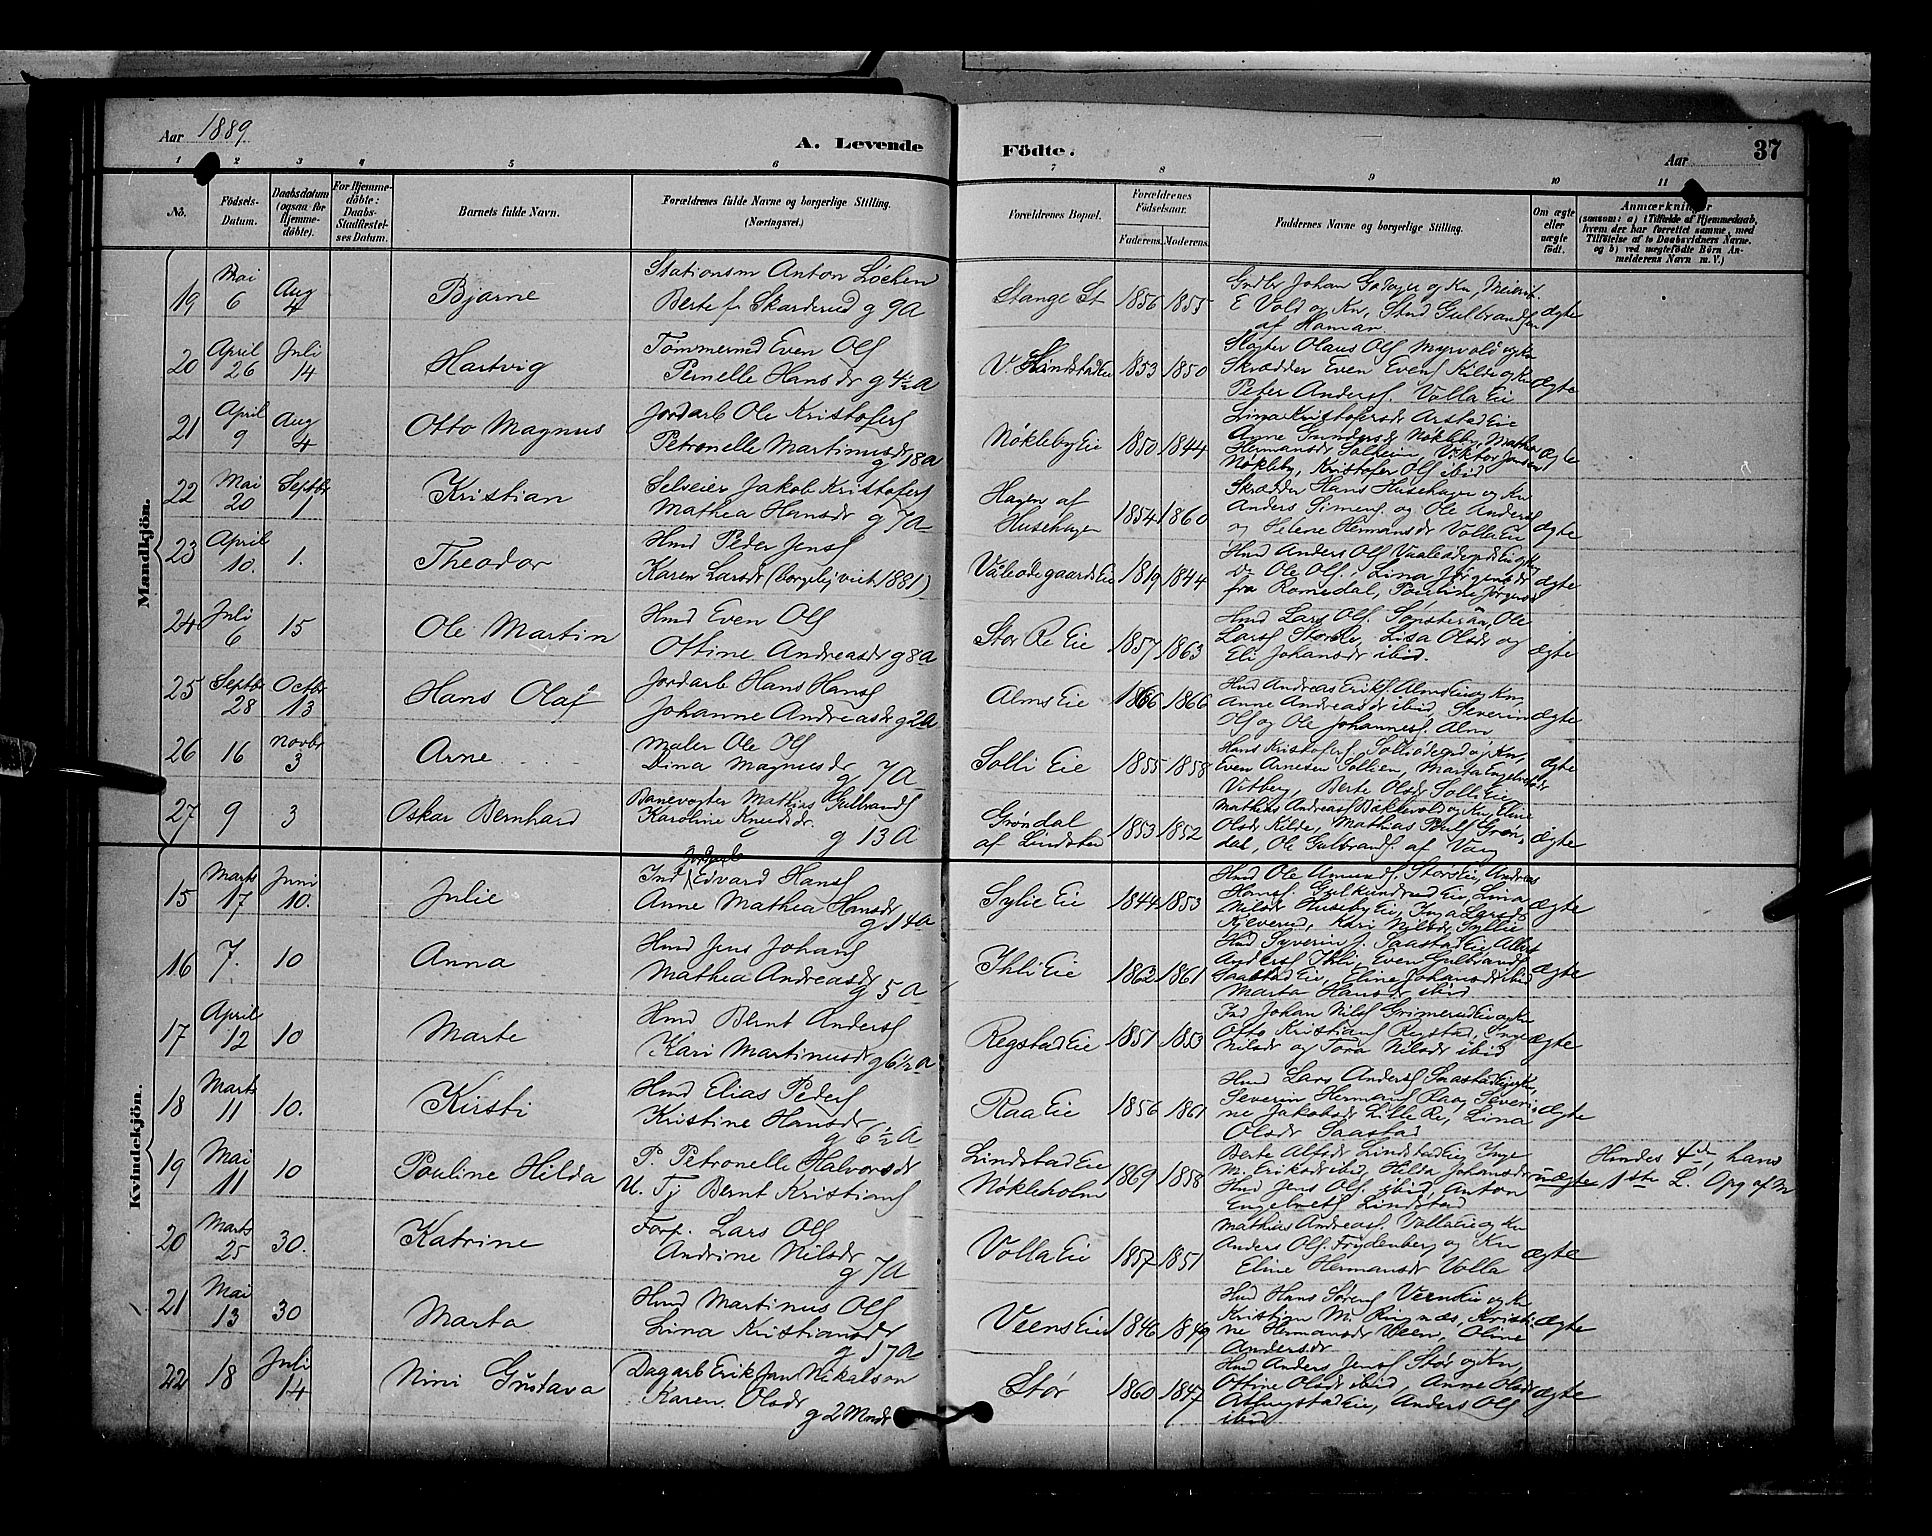 Aar 1889
A. Levende Födte.
Aar 37
1 2 3 4 5 6 7 8 9 10 11
No.
Födsels-Datum.
Daabsdatum (ogsaa for Hjemme-döbte).
For Hjemme-döbte: Daabs-Stadfæstel-ses Datum.
Barnets fulde Navn.
Forældrenes fulde Navne og borgerlige Stilling. (Næringsvei.)
Forældrenes Bopæl.
Forældrenes Födselsaar.
Faderens. Moderens.
Faddernes Navne og borgerlige Stilling.
Om ægte eller uægte födt.
Anmærkninger
(saasom: a) i Tilfælde af Hjemmedaab, hvem der har forrettet samme, med Tilföielse af to Daabsvidners Navne. og b) ved uægtefödte Börn An-melderens Navn m. V.)
Mandkjön.
19 Mai 6 Aug 4 Bjarne
Stationsm Anton Löchen
Berte f. Skarderud g 9 A
Stange St 1856 1855
E Vold og Kn, Stud Gulbrandsen
af Hamar
ægte
20 April 26 Juli 14 Hartvig
Tømmermd Even Ols
Pernelle Hansdr g 4½ A
V. Lindstad Eie 1853 1850
Slagter Olaus Ols Myrvold og Kn
Skrædder Even Evens Kilde og Kn
Peter Anders. Volla Eie
ægte
21 April 9 Aug 4 Otto Magnus
Jordarb Ole Kristofers
Petronelle Martinusdr g 18 A
Nökleby Eie 1850 1844
Lina Kristofersdr Arstad Eie
Anne Gundersdr Nökleby, Mathea
Hermansdr Solheim, Viktor Jensen
Nökleby, Kristofer Ols ibid
ægte
22 Mai 20 Septbr 1 Kristian
Selveier Jakob Kristofers
Mathea Hansdr g 7 A
Hagen af
Husehagen 1854 1860
Skrædder Hans Husehagen og Kn
Anders Simens. og Ole Anders
og Helene Hermansdr Volla Eie
ægte
23 April 10. 1. Theodor
Hmd Peder Jens
Karen Larsdr (borgelig viet 1881)
Vaaleödegaards Eie 1819 1844
Hmd Anders Ols
Do Ole Ols. Lina Jörgensdr
fra Romedal, Pauline Jörgensdr
ægte
24 Juli 6 15 Ole Martin
Hmd Even Ols
Ottine Andreasdr g 8 A
Stor Re Eie 1857 1863
Hmd Lars Ols. Ole
Lars Store, Lisa Olsdr og
Eli Johansdr ibid.
ægte
25 Septbr 28 Octbr 13 Hans Olaf
Jordarb Hans Hans
Johanne Andreasdr g 2 A
Alms Eie 1866 1866
Hmd Andreas Eriks. Alms Eie og Kn,
Anne Andreasdr ibid, Severin
Ols og Ole Johannes. Alm
ægte
26 16 Novbr 3 Arne
Maler Ole Ols
Dina Magnusdr g 7 A
Solli Eie 1855 1858
Hans Kristofers. Solliödegrd og Kn,
Even Arnesen Sollien, Marta Engebretsdr
Vitberg, Berte Olsdr Solli Eie
ægte
27 9 3 Oskar Bernhard
Banevogter Mathias Gulbrands
Karoline Knudsdr. g 13 A
Gröndal
af Lindstad 1853 1852
Mathias Andreas Bakkevold og Kn, Eline
Olsdr Kilde, Mathias Pauls Grön-
dal, Ole Gulbrands af Vang
Ægte
Kvindekjön.
15 Marts 17 Juni 10. Julie
Jordarb
Ind Edvard Hans
Anne Mathea Hansdr g 14 A
Sylie Eie 1844 1853
Hmd Ole Amunds. Störs Eie, Andreas
Hans. Gulkundrud Eie, Lina
Nilsdr Huseby Eie, Inga Larsdr
Kjeverud, Kari Nilsdr Syllie
ægte
16 7. 10 Anna
Hmd Jens Johans
Mathea Andreasdr g 5 A
Ihli Eie 1862 1861
Hmd Syverin J. Saastad Eie, Albert
Anders Ihli, Even Gulbrands
Saastad Eie, Eline Johansdr ibid
Marta Hansdr ibid
ægte
17 April 12 10 Marte
Hmd Bernt Anders
Kari Martinusdr g 6½ A
Regstad Eie 1851 1853
Ind Johan Nils Grimerud Eie og Kn
Otto Kristians Regstad, Inge
Nilsdr og Tora Nilsdr ibid
ægte
18 Marts 11 10. Kirsti
Hmd Elias Peders
Kristine Hansdr g 6½ A
Raa Eie 1856 1861
Hmd Lars Anders Saastad Eie og Kn,
Severin Hermans Raa, Severi-
ne Jakobsdr Lille Re, Lina
Olsdr Saastad
ægte
19 Mai 11 10 Pauline Hilda
P. Petronelle Halvorsdr
U. Tj Bernt Kristians
Lindstad Eie
Nökleholm 1869 1858
Berte Alfsdr Lindstad Eie, Inge
M. Eriksdr ibid, Hilda Johansdr
Hmd Jens Ols. ibid, Anton
Engelbrets Lindstad
uægte
Hendes 4de, hans
1ste L. Opg af M
20 Marts 25 30. Katrine
Forp. Lars Ols
Andrine Nilsdr g 7 A
Volla Eie 1857 1851
Mathias Andreas. Volla Eie og Kn
Anders Ols. Frydenberg og Kn
Eline Hermansdr Volla
ægte
21 Mai 13 30 Marta
Hmd Martinus Ols
Lina Kristiansdr g 17 A
Veens Eie 1846 1849
Hmd Hans Sörens Veens Eie og Kn
Kristian M. Ringnæs, Kristi-
ne Hermansdr Veen, Oline
Andersdr
ægte
22 18 Juli 14 Nini Gustava
Dagarb Erik Jan Mikalson
Karen Olsdr
g 2 Mndr
Stör 1860 1847
Hmd Anders Jens Stör og Kn,
Ottine Olsdr ibid, Anne Olsdr
Anders Ols
ibid
ægte